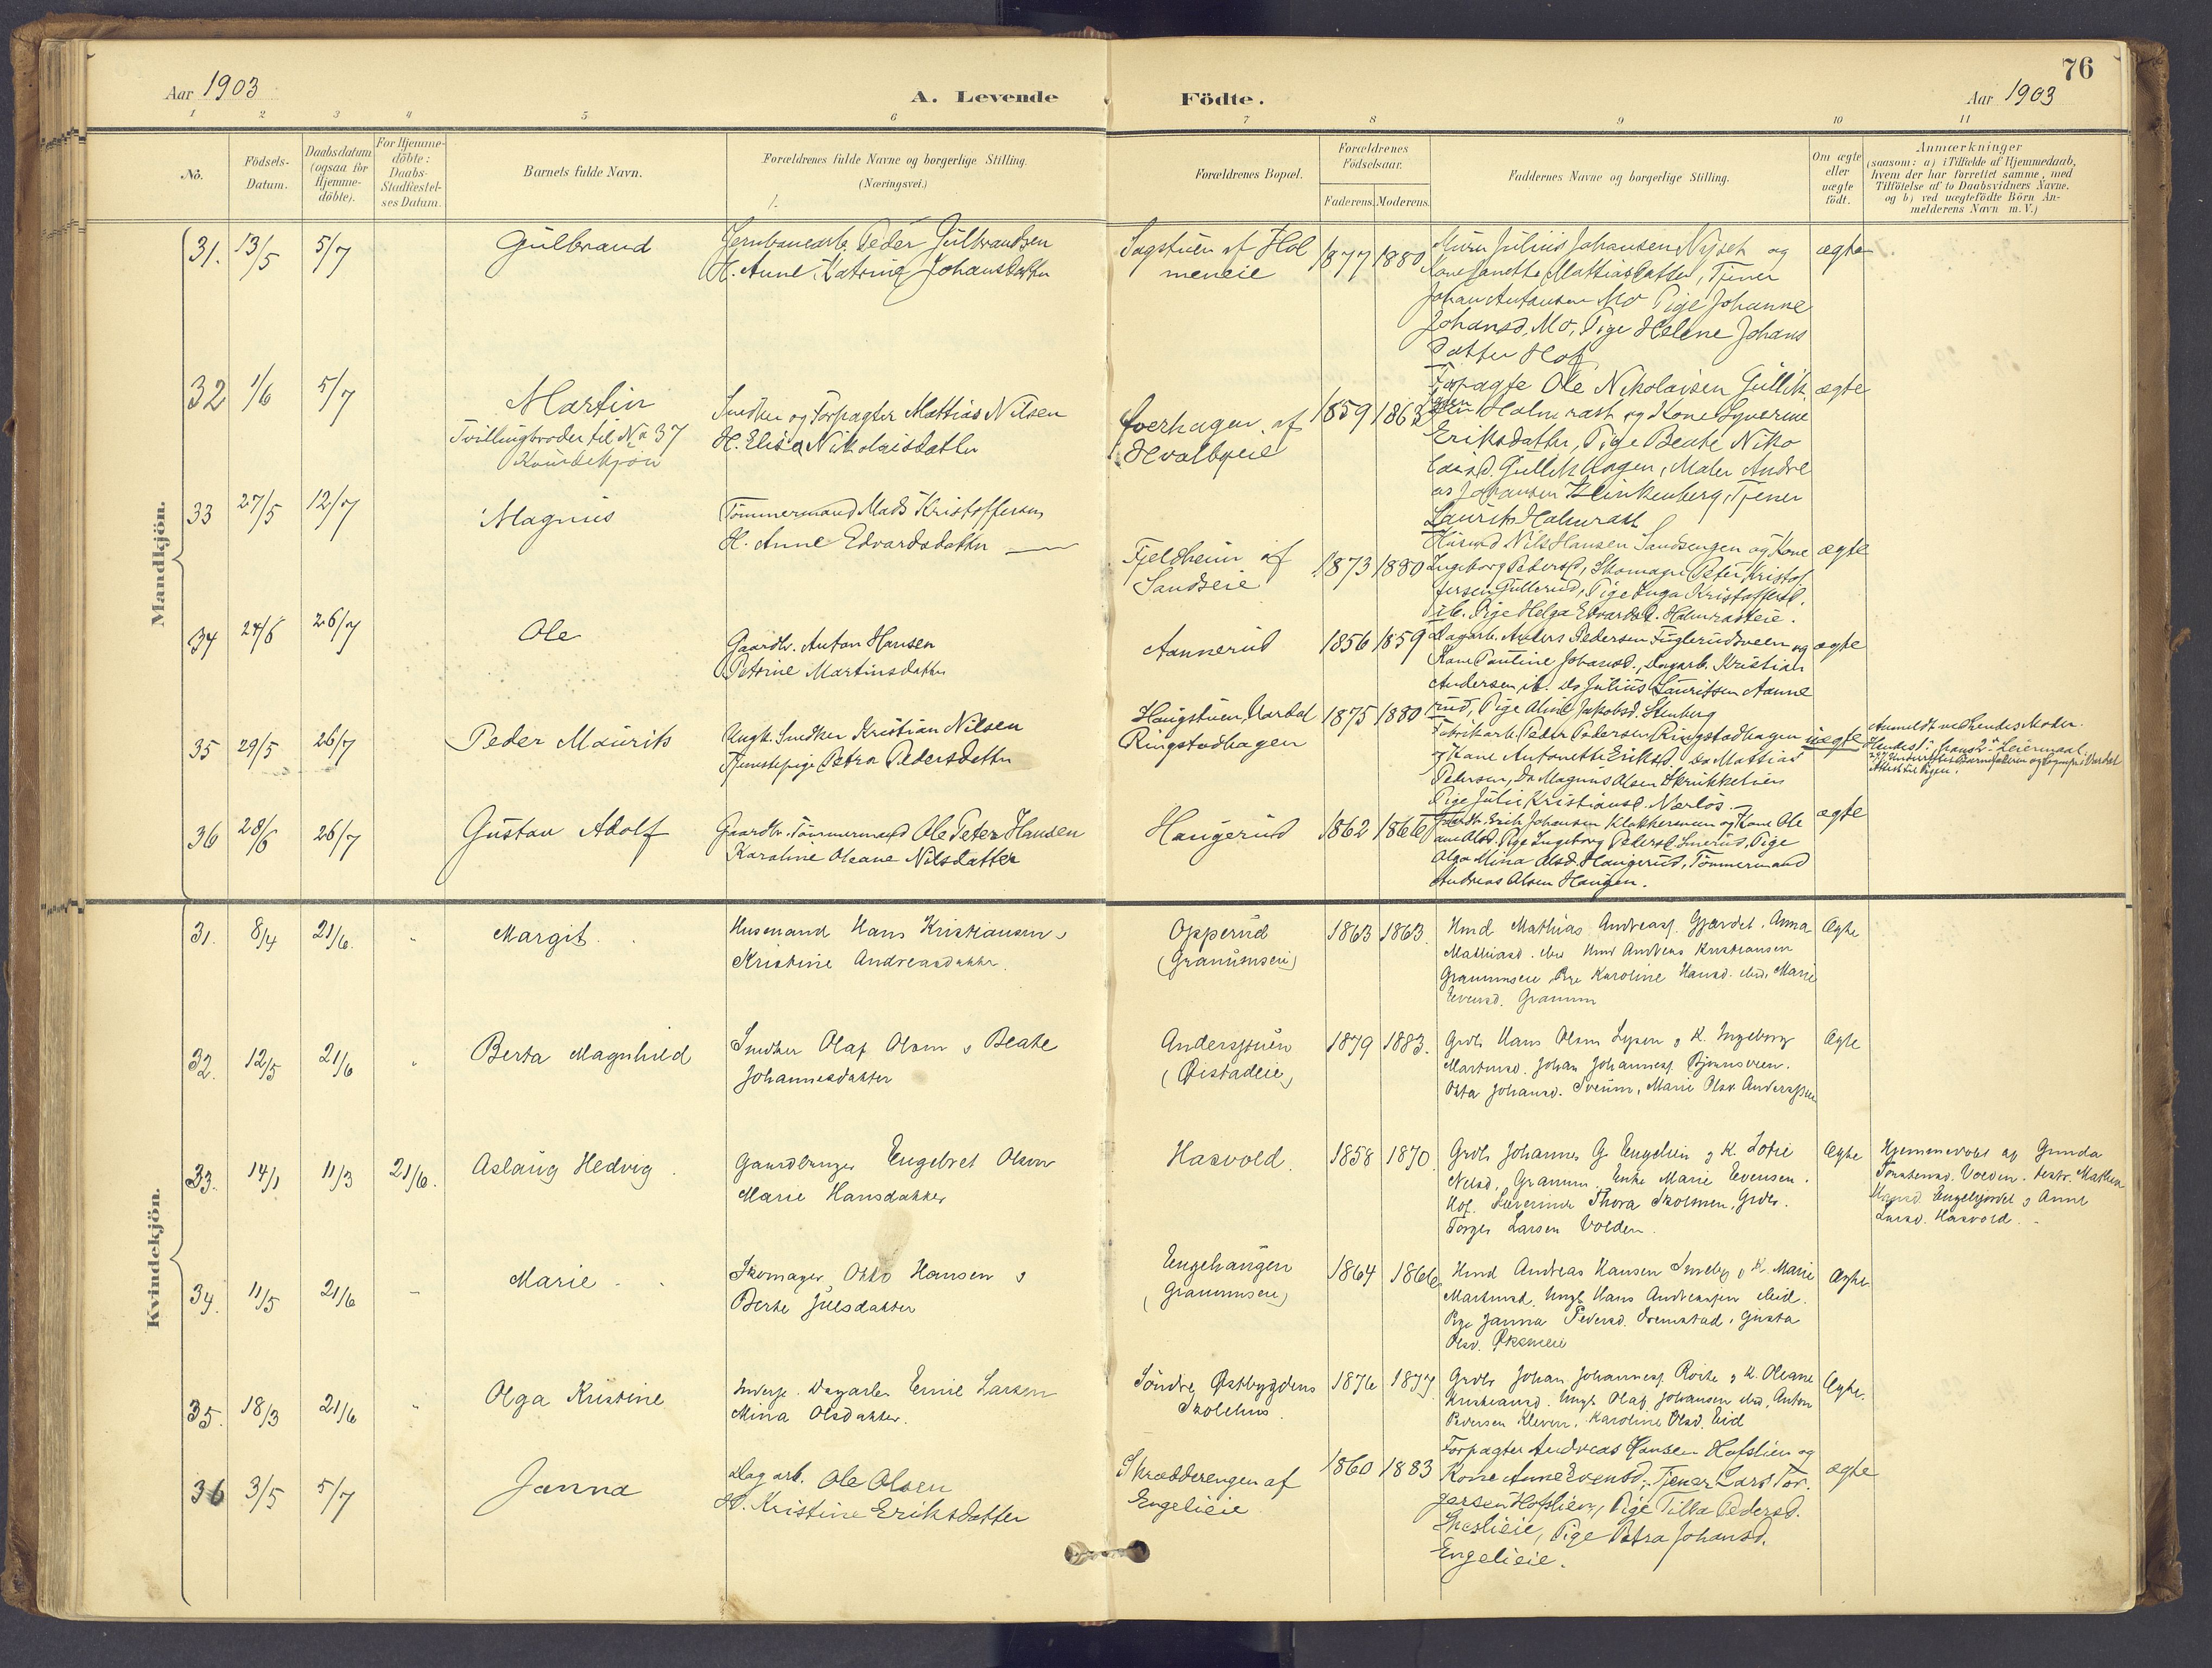 76
Aar 1903
A. Levende Födte.
Aar 1903
1 2 3 4 5 6 7 8 9 10 11
No.
Födsels-
Datum.
Daabsdatum
(ogsaa for
Hjemme-
döbte).
For Hjemme-
döbte:
Daabs-
Stadfæstel-
ses Datum.
Barnets fulde Navn.
Forældrenes fulde Navne og borgerlige Stilling.
(Næringsvei.)
Forældrenes Bopæl.
Forældrenes
Födselsaar.
Faderens. Moderens.
Faddernes Navne og borgerlige Stilling.
Om ægte
eller
uægte
födt.
Anmærkninger
(saasom: a) i Tilfælde af Hjemmedaab,
hvem der har forrettet samme, med
Tilföielse af to Daabsvidners Navne.
og b) ved uægtefödte Börn An-
melderens Navn m. V.)
Mandkjön.
31. 13/5 5/7
Gulbrand
Jernbanearb. Peder Gulbrandsen
H. Anne Katrina Johansdatter
Sagstuen af Hol
meneie
1877 1880
Murer Julius Johansen Nyset og
Kone Janette Mattiasdatter, Tjener
Johan Antonsen Mo Pige Johanne
Johansd. Mo, Pige Helene Johans
datter Hof
ægte
32 1/6 5/7
Martin
Tvillingbroder til No 37
Kvindekjön
Snedker og Forpagter Mattias Nilsen
H. Elisa Nikolaisdatter
Hvalbyeie
1859 1863
Forpagter Ole Nikolaisen Gullik
Holmrast og Kone Syverine
Eriksdatter, Pige Beate Niko
laisd. Gullikhagen, Maler Andre
as Johansen Klinkenberg, Tjener
Laurits Holmrast
ægte
33 27/5 12/7
Magnus
Tömmermand Mads Kristoffersen
H. Anne Edvardsdatter
Fjeldheim af
Sandseie
1873 1880
Husmd Nils Hansen Sandsengen og Kone
Ingeborg Pedersd, Skomager Peter Kristof
fersen Gullerud, Pige Inga Kristoffersd.
ib. Pige Helga Edvardsd. Holmrasteie.
ægte
34 24/6 26/7
Ole
Gaardbr. Anton Hansen
Petrine Martinsdatter
Aannerud
1856 1859
Dagarb. Anders Pedersen Fuglerudsveen og
Kone Pauline Johansd., Dagarb. Kristian
Andersen ib. Do Julius Lauritsen Aanne
rud, Pige Aline Jakobsd. Stenberg
ægte
35 29/5 26/7
Peder Maurits
Ungk. Snedker Kristian Nilsen
Tjenestepige Petra Pedersdatter
Haugstuen, Vardal
Ringstadhagen
1875 1880
Fabrikarb. Peder Pedersen Ringstadhagen
og Kone Antonette Eriksd. Do Mattias
Pedersen, Do Magnus Olsen Skrukkelien
Pige Julie Kristiansd. Nærlös.
uægte
Anmeldt ved hendes Moder.
Hendes 1ste hans 2det Leiermaal.
36 28/6 26/7
Gustav Adolf
Gaardbr. Tömmermand Ole Peter Hansen
Karoline Oleane Nilsdatter
Haugerud
1862 1866
Gaardbr. Erik Johansen Klokkersveen og Kone Ole
ane Olsd. Pige Ingeborg Pedersd. Pige
Olga Mina Olsd. Haugerud, Tömmermand
Andreas Olsen Haugen.
ægte
Kvindekjön.
31. 8/4 21/6. "
Margit
Husmand Hans Kristiansen &
Kristine Andreasdatter.
Opperud
(Granumseie)
1863 1863.
Hmd Mathias Andreass. Gjærdet, Anna
Mathiasd. ibid. Hmd Andreas Kristiansen
Granumseie Pige Karoline Hansd. ibid, Marie
Evensd. Granum
Ægte
32. 12/5 21/6 "
Berta Magnhild
Snedker Olaf Olsen & Beate
Johannesdatter
Andersstuen
(Öistadeie)
1879 1883.
Grdb Hans Olsen Lysen & K. Ingeborg
Martinsd. Johan Johanness. Björnsveen.
Otta Johansd. Sveum, Marie Olsd. Andersstuen
Ægte
33. 14/1 11/3 21/6.
Aslaug Hedvig
Gaardbruger Engebret Olsen
Marie Hansdatter
Hasvold.
1858 1870.
Grdb Johannes G. Engelien & K. Lovie
Nilsd, Granum, Enke Marie Evensen.
Hof. Lærerinde Thora Skolmen, Grdbr.
Torger Larsen Volden.
Ægte
Hjemmedöbt af Gunda
Torstensd. Volden. Test. Mathea
Hansd. Engelgjordet & Anne
Larsd. Hasvold.
34. 11/5 21/6 –
Marie
Skomager Otto Hansen &
Berte Julsdatter
Engehaugen
(Granumseie)
1864 1866
Hmd Andreas Hansen Sneby & K. Marie
Martinsd. Ungk Hans Andreassen ibid.
Pige Janna Pedersd. Svenstad, Gusta
Olsd.
Ægte
35. 18/3 21/6 "
Olga Kristine
Inderst. Dagarb. Emil Larsen
Mina Olsdatter.
Söndre Östbygdens
Skolehus.
1876 1877
Grdb Johan Johanness. Roste & K. Oleane
Kristiansd. Ungk. Olaf Johansen ibid, Anton
Pedersen Kleven, Karoline Olsd. Eid
Ægte.
36 3/5 5/7
Janna
Dagarb. Ole Olsen
H. Kristine Eriksdatter
Skrædderengen af
Engelieie
1860 1883
Forpagter Andreas Hansen Hofslien og
Kone Anne Evensd; Tjener Lars Tor
gersen Hofslien, Pige Tilla Pedersd.
Pige Petra Johansd.
Engelieie.
ægte